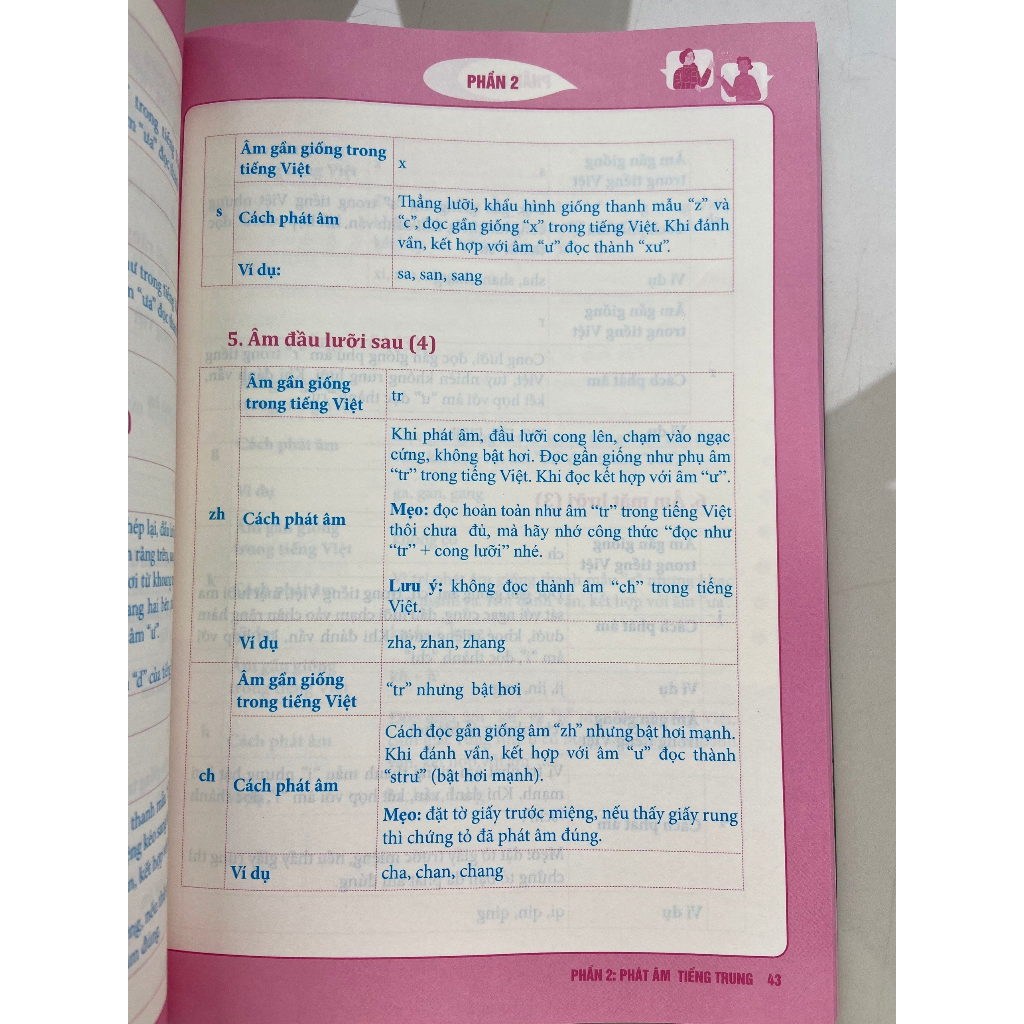 PHẦN 2
Âm gần giống trong
tiếng Việt
x
s
Cách phát âm
Thẳng lưỡi, khẩu hình giống thanh mẫu “z” và
“c”, đọc gần giống “x” trong tiếng Việt. Khi đánh
vần, kết hợp với âm “ư” đọc thành “xư”.
Ví dụ:
sa, san, sang
5. Âm đầu lưỡi sau (4)
Âm gần giống
trong tiếng Việt
tr
zh
Cách phát âm
Khi phát âm, đầu lưỡi cong lên, chạm vào ngạc
cứng, không bật hơi. Đọc gần giống như phụ âm
“tr” trong tiếng Việt. Khi đọc kết hợp với âm “ư”.
Mẹo: đọc hoàn toàn như âm “tr” trong tiếng Việt
thôi chưa đủ, mà hãy nhớ công thức “đọc như
“tr” + cong lưỡi” nhé.
Lưu ý: không đọc thành âm “ch” trong tiếng
Việt.
Ví dụ
zha, zhan, zhang
Âm gần giống
trong tiếng Việt
“tr” nhưng bật hơi
ch
Cách phát âm
Cách đọc gần giống âm “zh” nhưng bật hơi mạnh.
Khi đánh vần, kết hợp với âm “ư” đọc thành
“strư” (bật hơi mạnh).
Mẹo: đặt tờ giấy trước miệng, nếu thấy giấy rung
thì chứng tỏ đã phát âm đúng.
Ví dụ
cha, chan, chang
PHẦN 2: PHÁT ÂM TIẾNG TRUNG 43